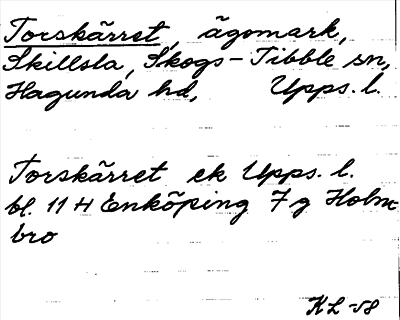 Torskärret, ägomark,
Skillsta, Skogs-Tibble sn,
Hagunda hd, Upps. l.
Torskärret ek Upps. l.
bl. 11 H Enköping 7 g Holm-
bro
KL -58